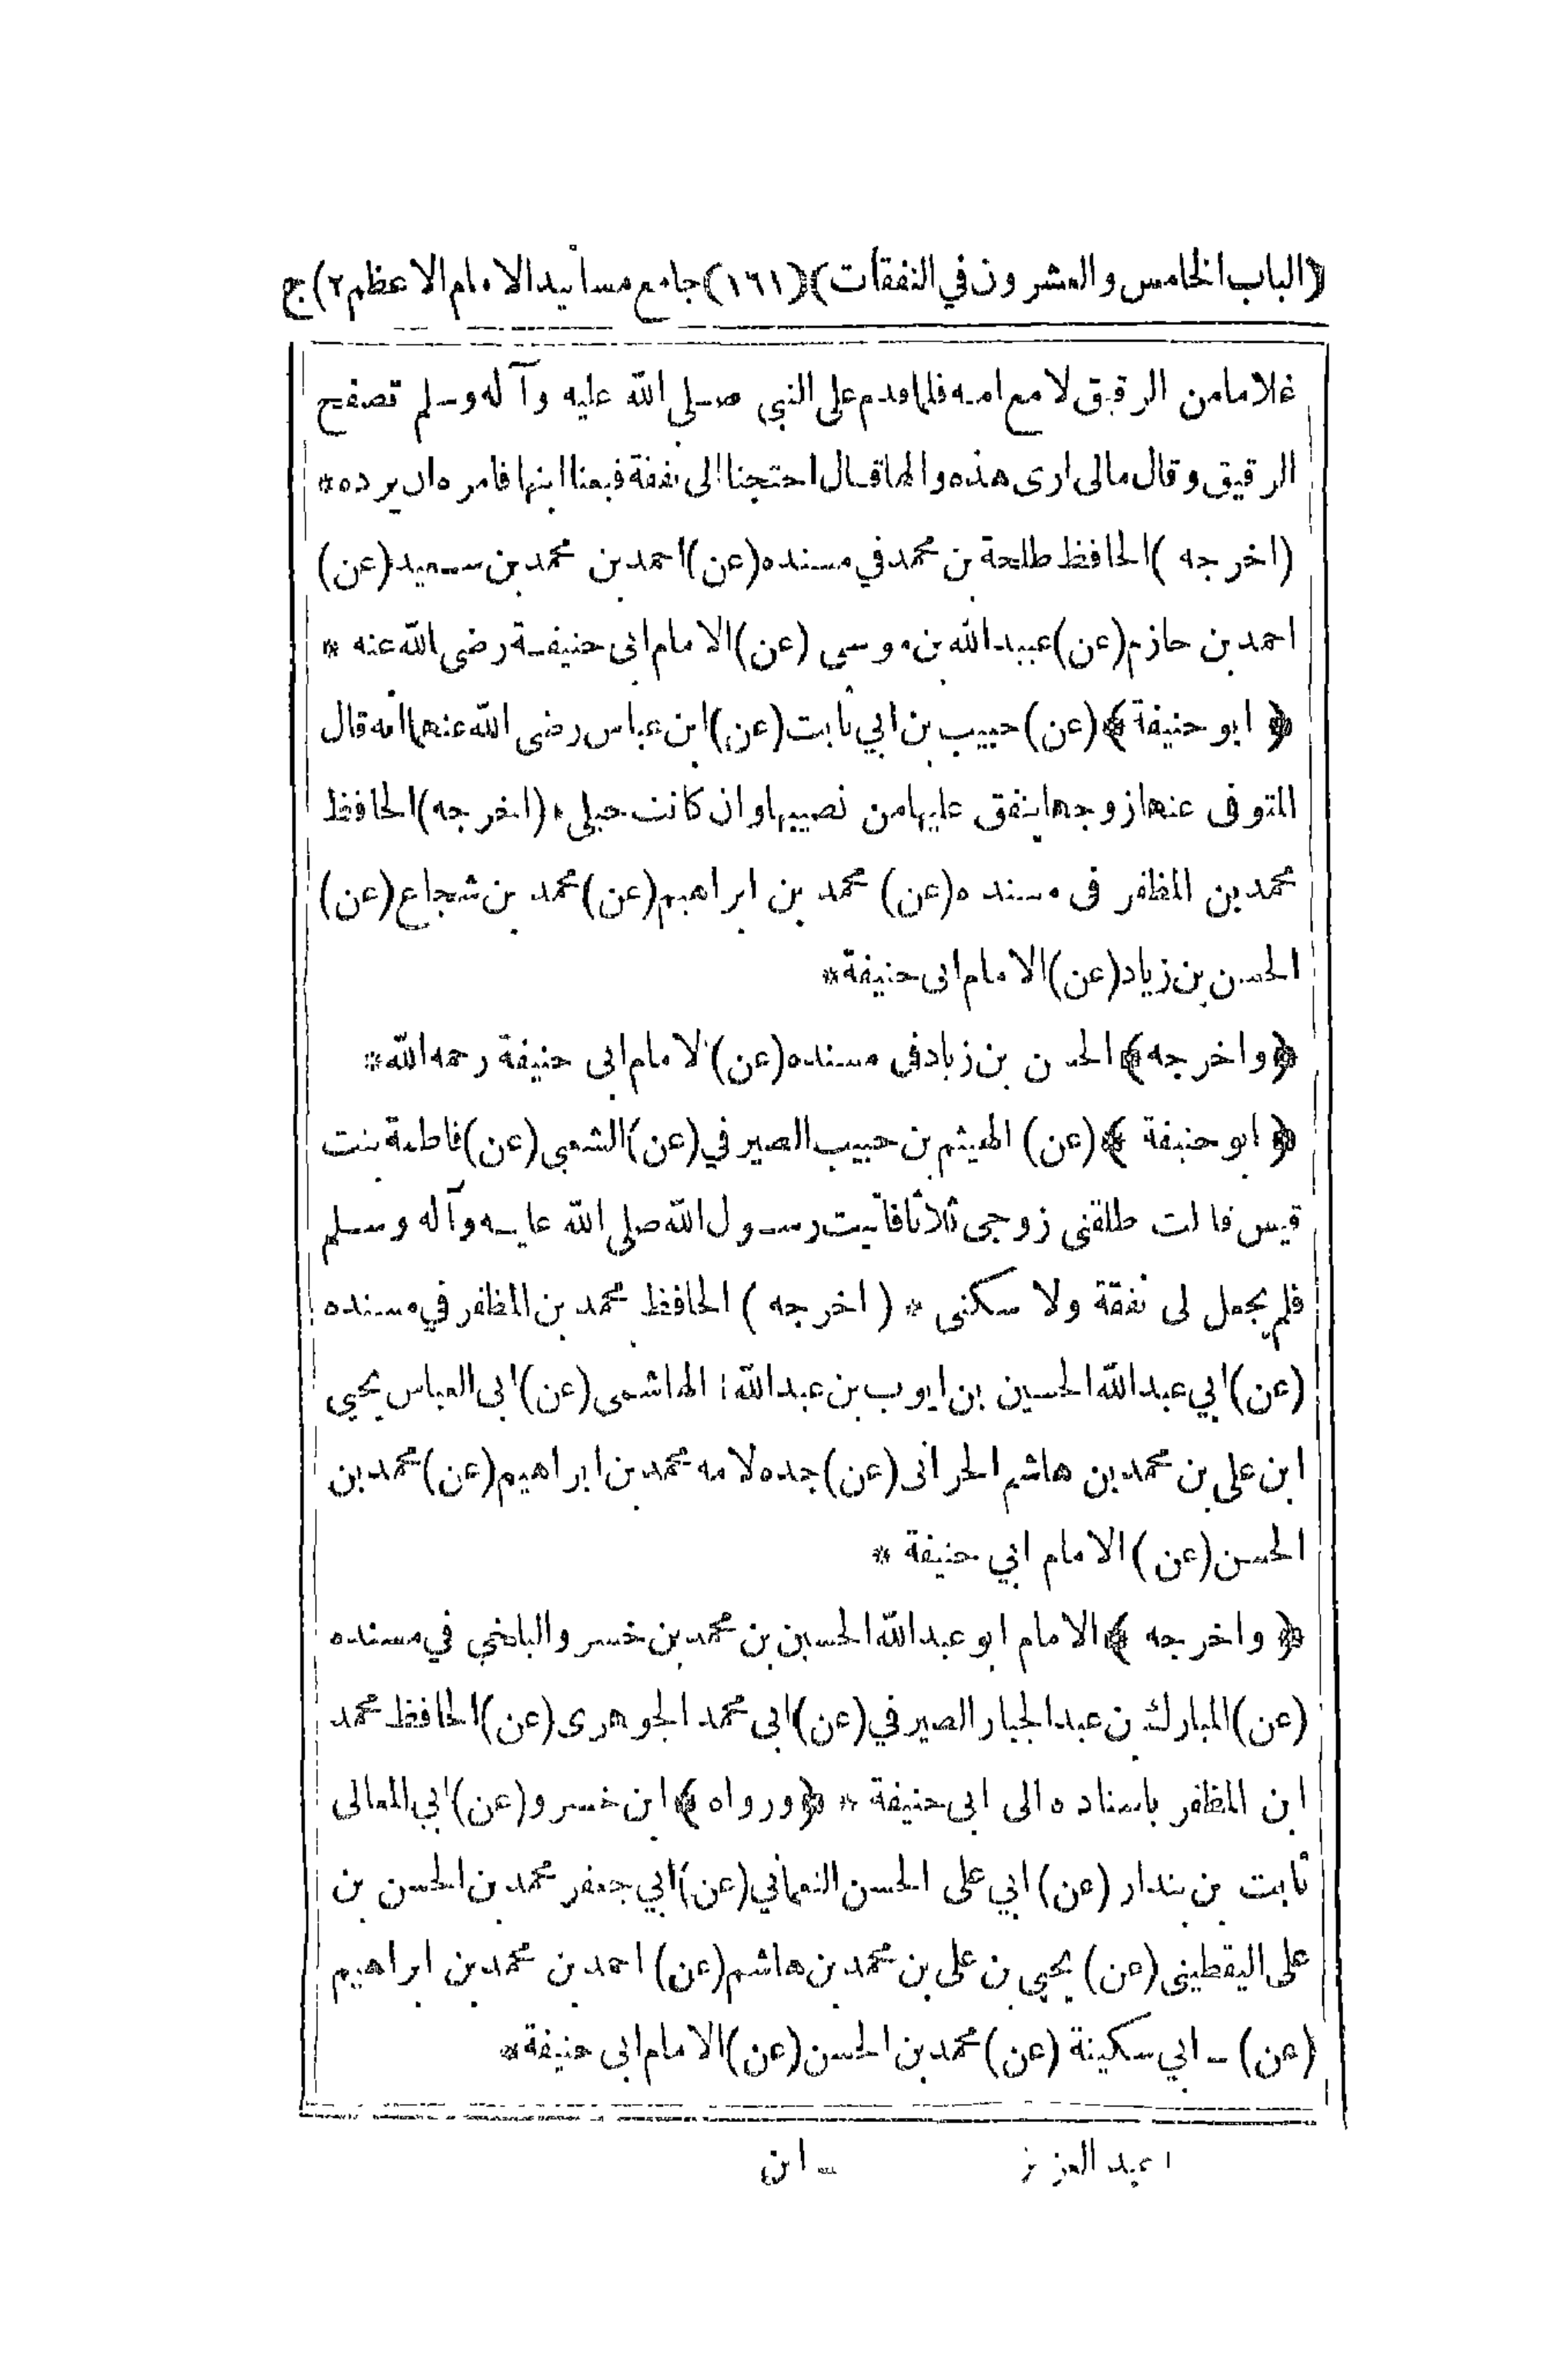 (الباب الخامس والعشرون في النفقات)(١٦١)جامع مسانيد الامام الاعظم٢)ج
غلاما من الرقيق لا مع امه فلما قدم على النبي صلى الله عليه وآله وسلم تصفح
الرقيق وقال مالى ارى هذه والها قال احتجنا الى نفقة فبعنا ابنها فامره ان يرده*
(اخرجه) الحافظ طلحة بن محمد في مسنده (عن) احمد بن محمد بن سعيد (عن)
احمد بن حازم (عن) عبيد الله بن موسى (عن) الامام ابى حنيفة رضى الله عنه *
﴿ ابو حنيفة ﴾ (عن) حبيب بن ابي ثابت (عن) ابن عباس رضى الله عنهما انه قال
المتوفى عنها زوجها ينفق عليها من نصيبها وان كانت حبلى * (اخرجه) الحافظ
محمد بن المظفر فى مسنده (عن) محمد بن ابراهيم (عن) محمد بن شجاع (عن)
الحسن بن زياد (عن) الامام ابى حنيفة *
﴿ واخرجه ﴾ الحسن بن زياد فى مسنده (عن) الامام ابى حنيفة رحمه الله *
﴿ ابو حنيفة ﴾ (عن) الهيثم بن حبيب الصيرفي (عن) الشعبى (عن) فاطمة بنت
قيس قالت طلقنى زوجى ثلاثا فاتيت رسول الله صلى الله عليه وآله وسلم
فلم يجعل لى نفقة ولا سكنى * (اخرجه) الحافظ محمد بن المظفر في مسنده
(عن) ابي عبد الله الحسين بن ايوب بن عبد الله ١ الهاشمى (عن) ابى العباس يحيى
ابن على بن محمد بن هاشم الحرانى (عن) جده لامه محمد بن ابراهيم (عن) محمد بن
الحسن (عن) الامام ابي حنيفة *
﴿ واخرجه ﴾ الامام ابو عبد الله الحسين بن محمد بن خسرو البلخي في مسنده
(عن) المبارك بن عبد الجبار الصيرفي (عن) ابى محمد الجوهرى (عن) الحافظ محمد
ابن المظفر باسناده الى ابى حنيفة * ﴿ ورواه ﴾ ابن خسرو (عن) ابي المعالى
ثابت بن بندار (عن) ابي على الحسن النعماني (عن) ابي جعفر محمد بن الحسن بن
على اليقطينى (عن) يحيى بن على بن محمد بن هاشم (عن) احمد بن محمد بن ابراهيم
(عن) ـ ابي سكينة (عن) محمد بن الحسن (عن) الامام ابى حنيفة *
١ عبد العزيز ـ ابن